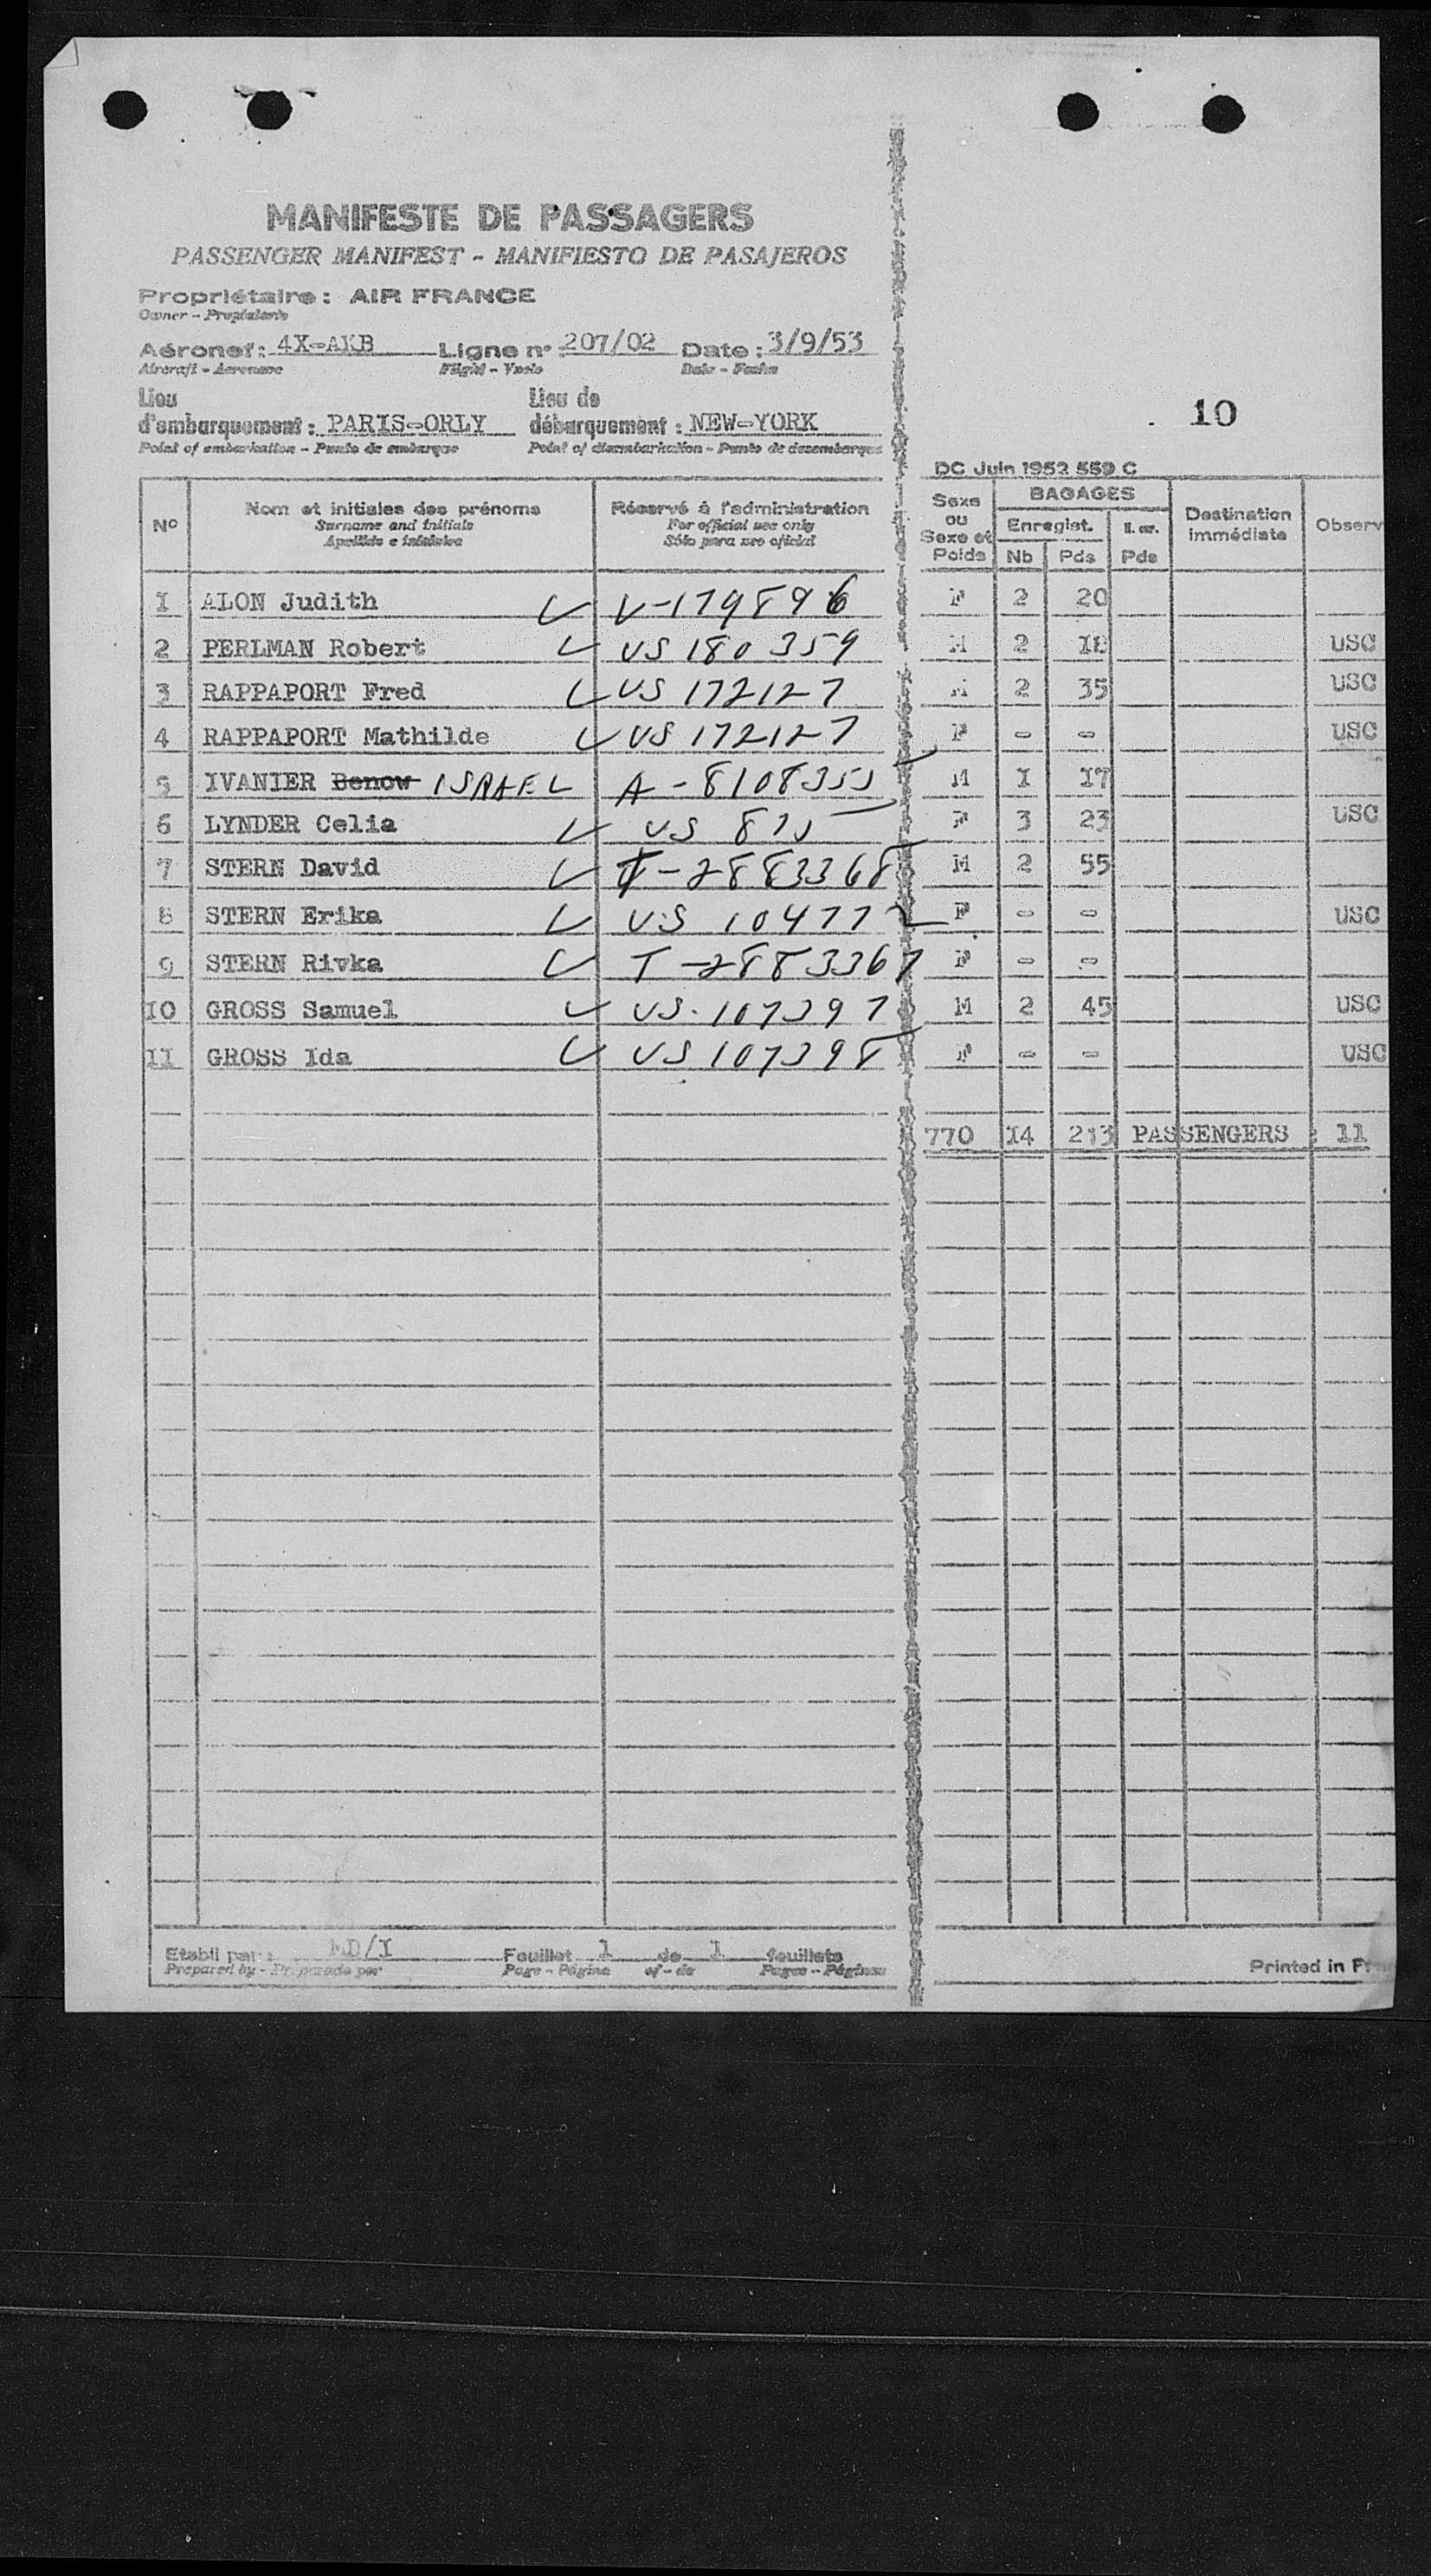 MANIFESTE DE PASSAGERS
PASSENGER MANIFEST - MANIFIESTO DE PASAJEROS
Propriétaire : AIR FRANCE
Owner - Propietario
Aéronef : 4X-AKB Ligne n° : 207/02 Date : 3/9/53
Aircraft - Aeronave Flight - Vuelo Date - Fecha
Lieu d'embarquement : PARIS-ORLY Lieu de débarquement : NEW-YORK
Point of embarkation - Punto de embarque Point of disembarkation - Punto de desembarque
10
DC Juin 1952 559 C
N° Nom et initiales des prénoms Réservé à l'administration Sexe ou Sexe et Poids BAGAGES Destination immédiate Observ
Surname and initials For official use only Enregist.
Apellido e iniciales Sólo para uso oficial Nb Pds Pds
1 ALON Judith V-179896 F 2 20
2 PERLMAN Robert US 180359 M 2 18 USC
3 RAPPAPORT Fred US 172127 M 2 35 USC
4 RAPPAPORT Mathilde US 172127 F - - USC
5 IVANIER Benow ISRAEL A-8108355 M 1 17
6 LYNDER Celia US 875 F 3 23 USC
7 STERN David T-2883368 M 2 55
8 STERN Erika US 104772 F - - USC
9 STERN Rivka T-2883367 F - -
10 GROSS Samuel US.107397 M 2 45 USC
11 GROSS Ida US 107398 F - - USC
770 14 213 PASSENGERS : 11
Etabli par : MD/I Feuillet 1 de 1 feuillets
Prepared by - Preparado por Page - Página of - de Pages - Páginas
Printed in